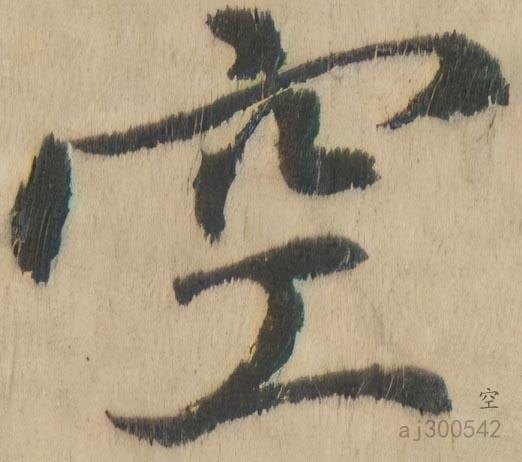 空
空
aj300542